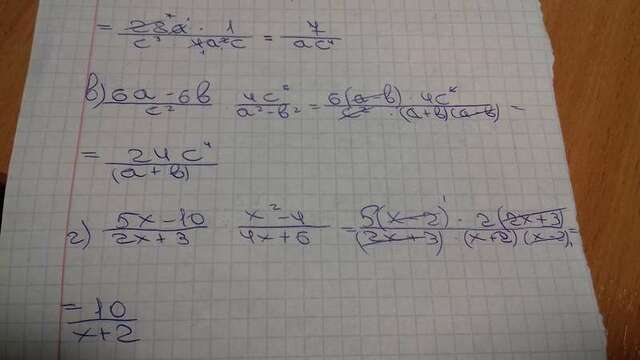 = 28a · 1 / c³ · 4a²c = 7 / ac⁴
в) 6a - 6в / c² · 4c⁶ / a² - в² = 6(a-в) · 4c⁶ / c² · (a+в)(a-в) =
= 24c⁴ / (a+в)
г) 5x-10 / 2x+3 : x²-4 / 4x+6 = 5(x-2) · 2(2x+3) / (2x+3) · (x+2)(x-2) =
= 10 / x+2